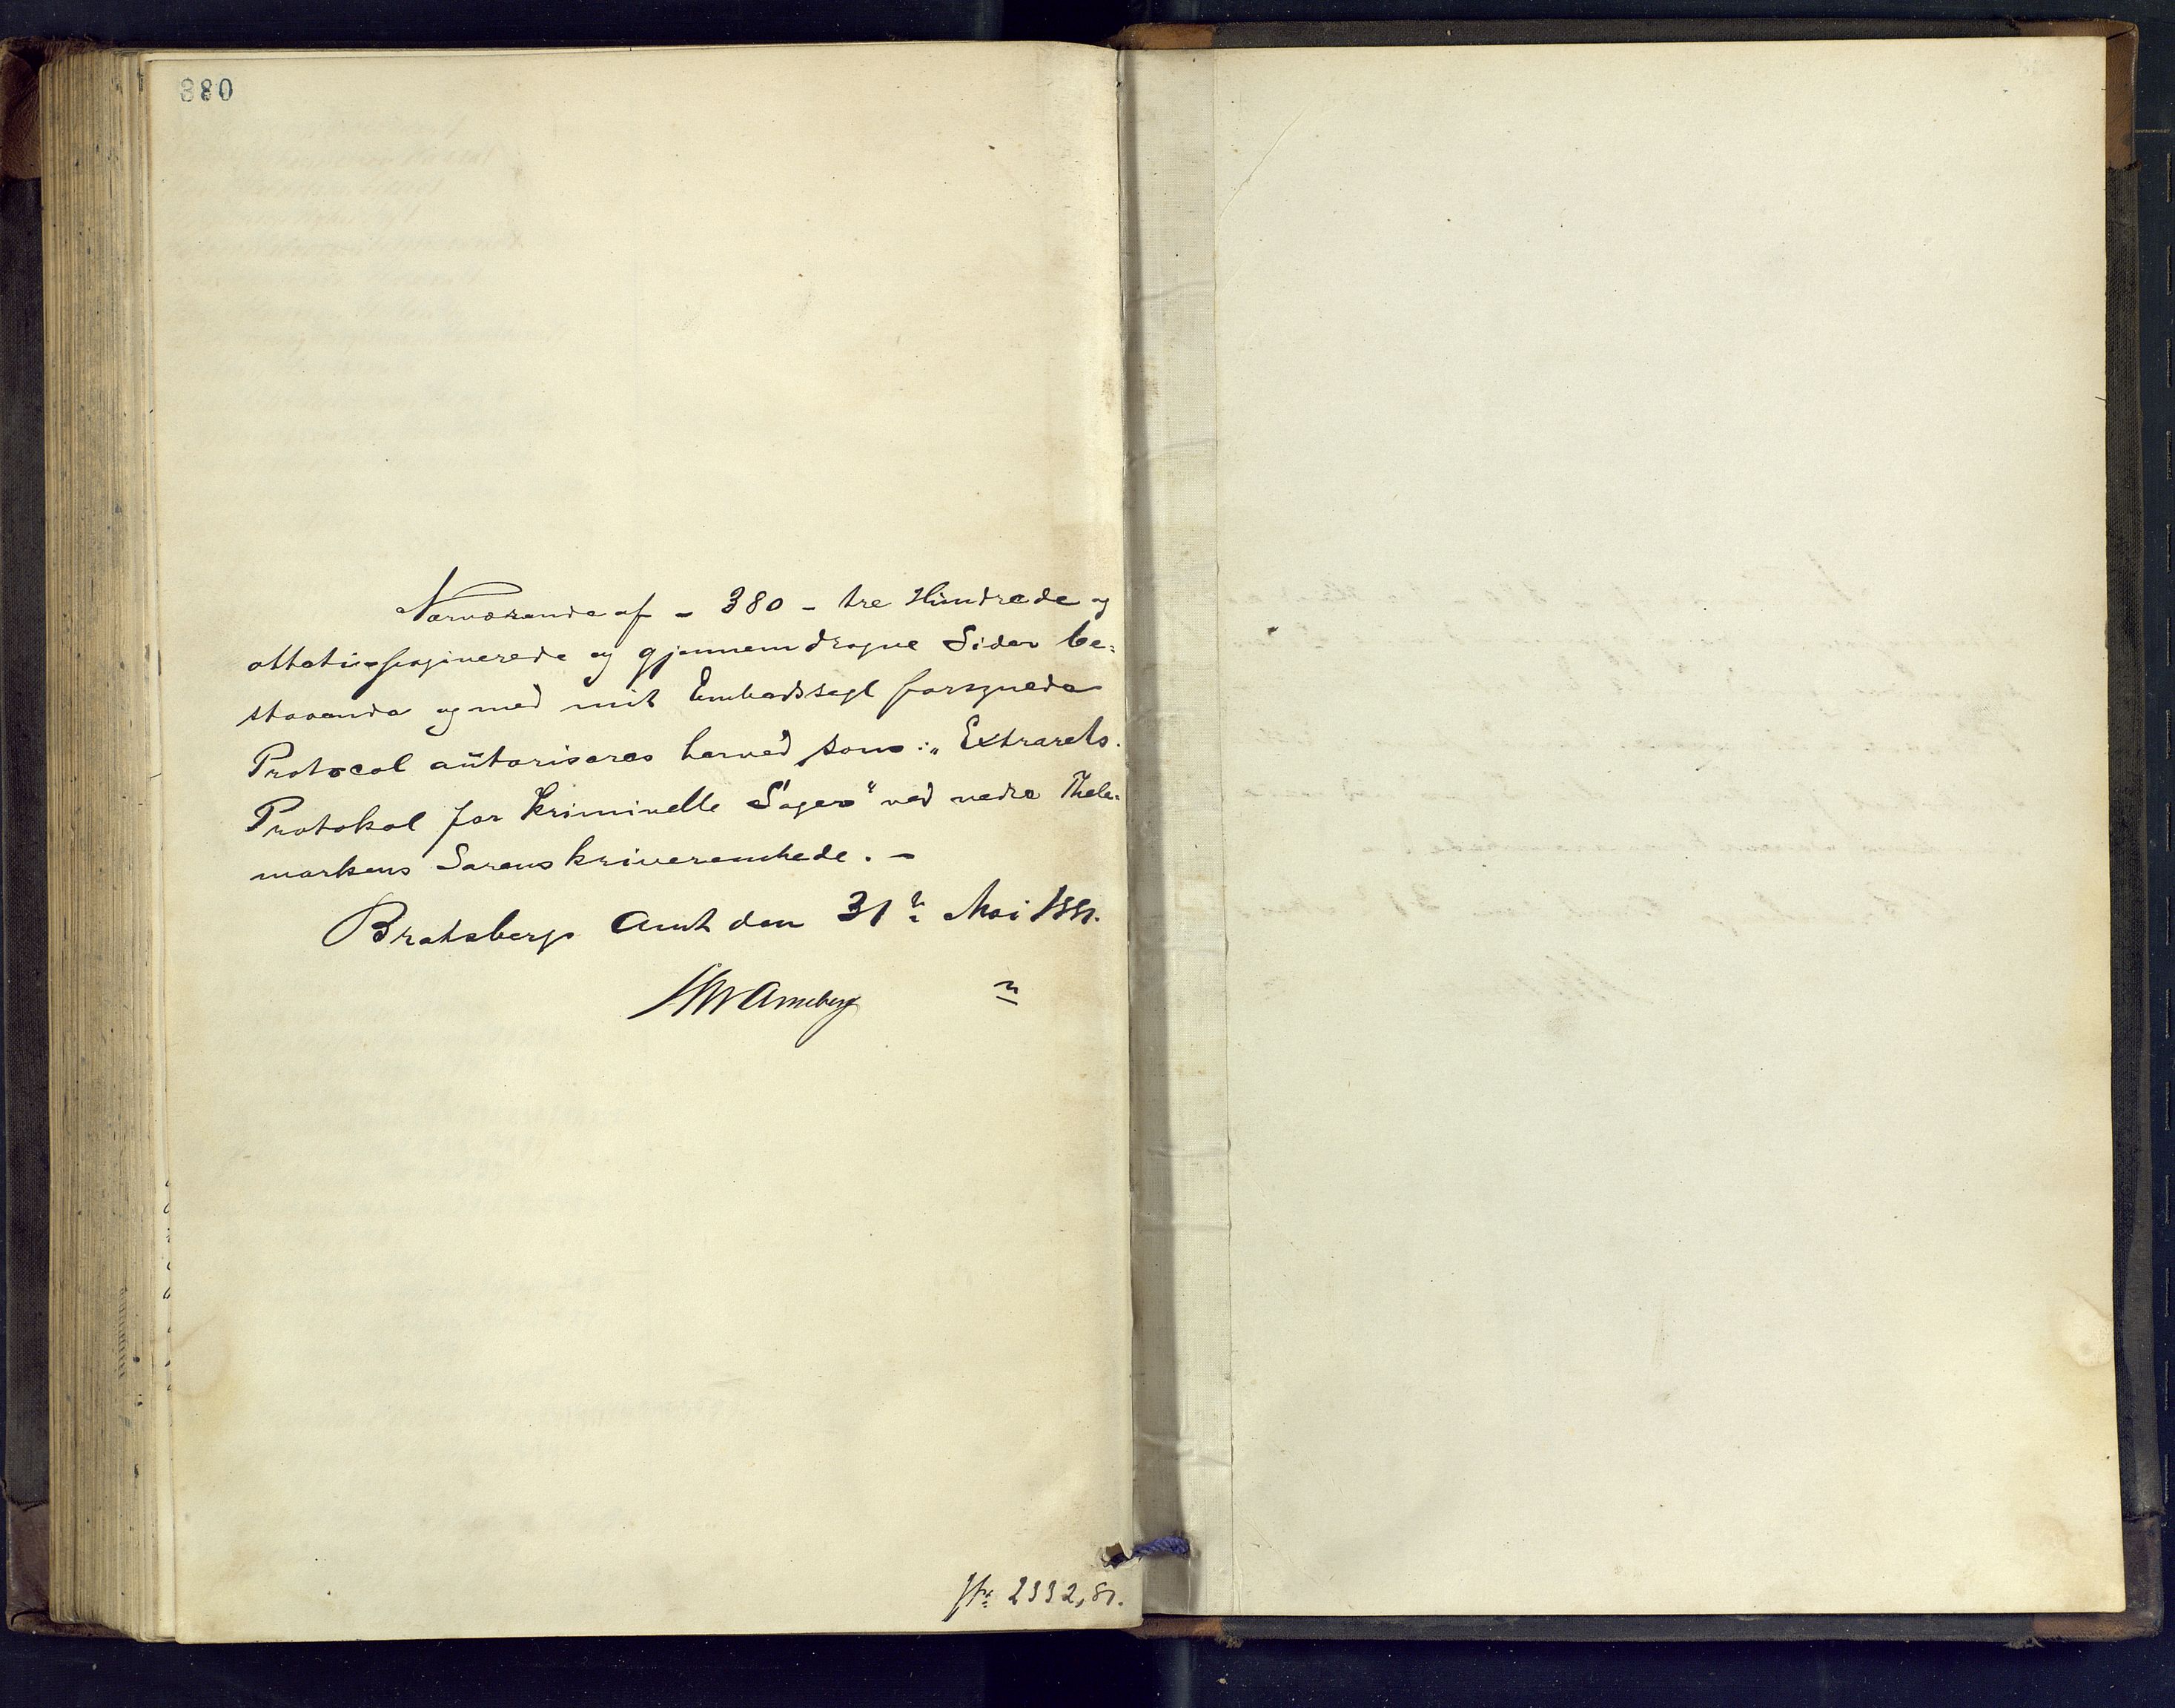 380
Nærværende af – 380 – tre Hundrede og
otteti paginerede og gjennemdragne Sider be-
staaende og med mit Embedssegl forsynede
Protocol autoriseres herved som: „Extrarets-
Protokol for Kriminelle Sager“ ved nedre Thele-
markens Sorenskriverembede. –
Bratsberg Amt den 31te Mai 1881.
Aimeberg
2332,81.